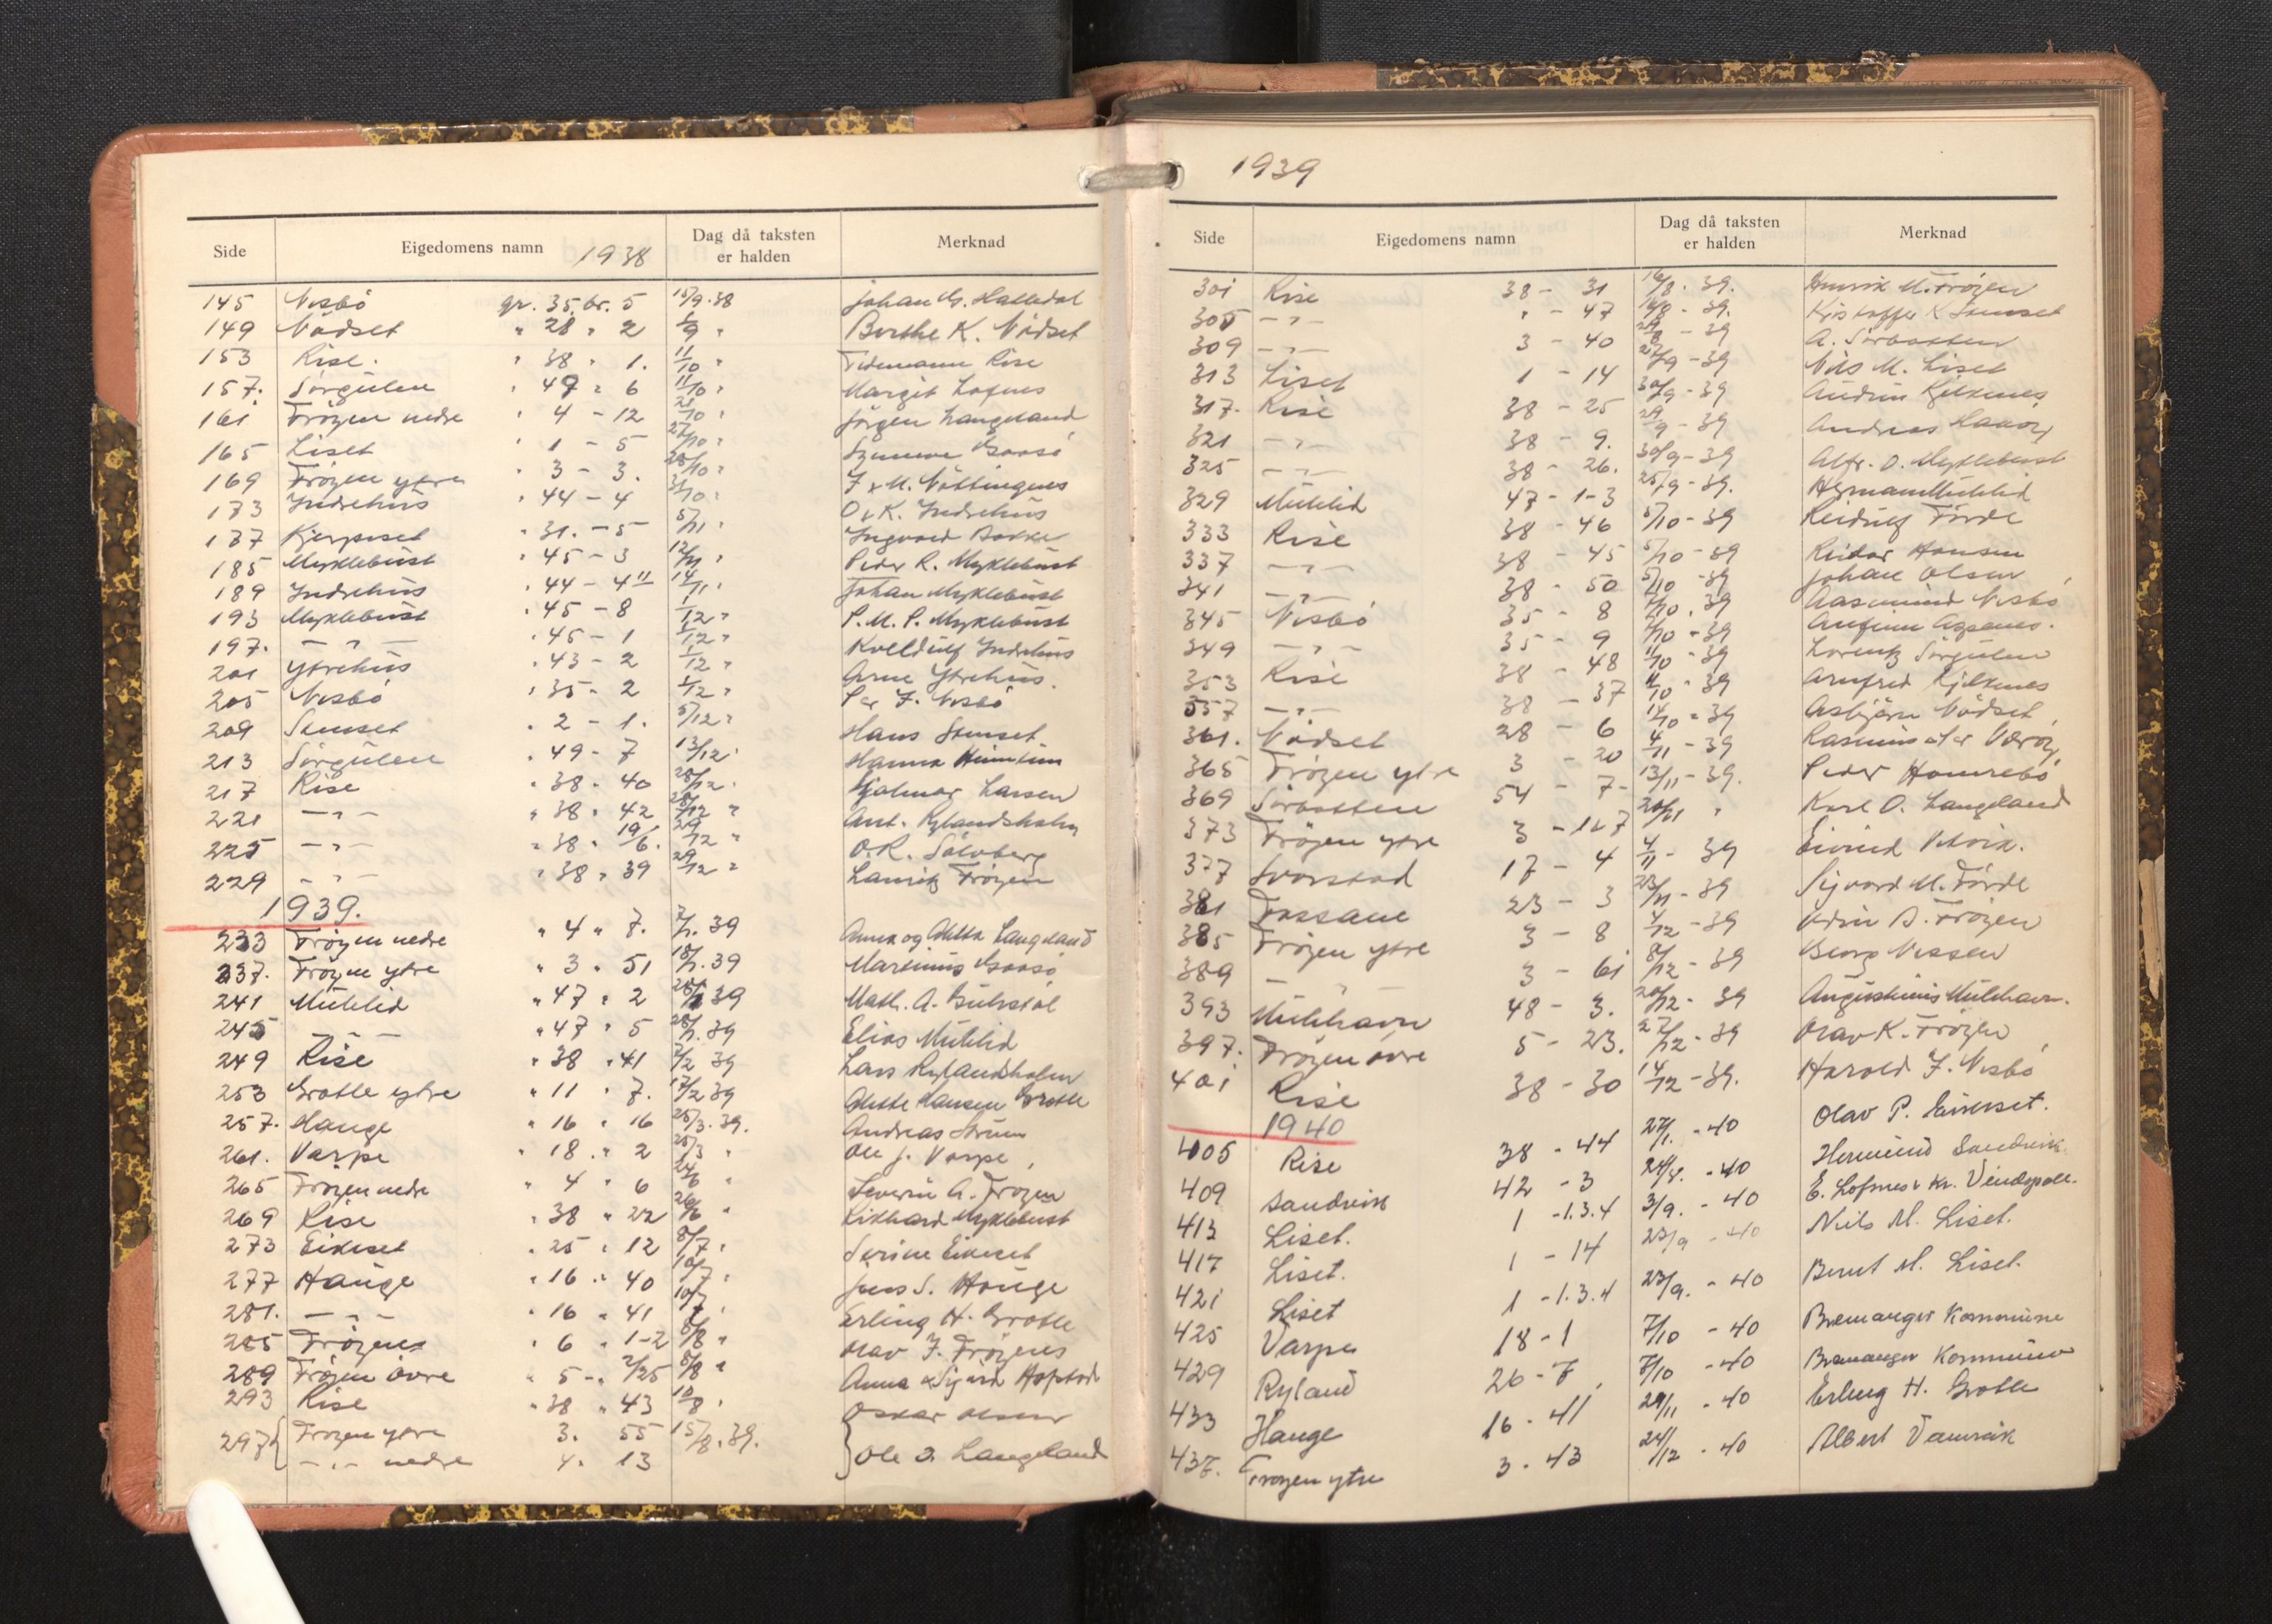 Side Eigedomens namn 1938 Dag då taksten er halden Merknad
145 Nesbö gr. 35. br. 5 15/9.38 Johan
149 Nödset " 28 " 2 " Berthe K. Nödset
153 Rise. " 38 " 1. 11/10 " Tidemann Rise
157. Sörgulen 6 11/10 " Margit Lofnes
161 Fröyen nedre " 4 - 12 Jörgen Langeland
165 Liset " 1 - 5 27/10 "
169 Fröyen ytre " 3 - 3. 28/10 "
173 Indrehus " 44 - 4 O. K. Indrehus
Kjerpeset " 31. - 5 5/11 " Ingvard Bakke
185 Myklebust " 45 - 3 12/11 " Peder R. Myklebust
189 Indrehus " 44 - 4 14/11 " Johan Myklebust
193 Myklebust " 45 - 8 1/12 " P. M. P. Myklebust
197. - " - " 45 - 1 1/12 " Kveldulf Indrehus
201 Ytrehus " 43 - 2 1/12 " Arne Ytrehus.
205 Nesbö " 35 - 2 1/12 " Per J. Nesbö
209 Semset " 2 - 1. 5/12 " Hans Semset
213 Sörgulen " 49 - 7 13/12 " Hanna
217 Rise " 38 - 40 28/12 " Hjalmar Larsen
221 - " - " 38 " 42 28/12 " Ant. Rylandsholm
225 - " - " 38 " 19/6. 29/12 " O. R. Solvberg
229 - " - " 38 " 39 29/12 " Lauritz Fröyen
1939.
233 Fröyen nedre " 4 " 7. 7/1. 39 Anna og Mette Langeland
237. Fröyen ytre " 3 " 51 18/1. 39 Martinus
241 Mulelid " 47 " 2 39 Math. A.
245 - " - " 47 " 5 28/1. 39 Elias Mulelid
249 Rise " 38 " 41 39 Lars Rylandsholm
253 Grotle ytre " 11 " 7. 17/2 39 Mette Hansen Grotle
257. Hauge " 16 " 16 25/3. 39. Andreas
261. Varpe " 18 " 2 25/3 " Ole J. Varpe
265 Fröyen nedre " 4 " 6 24/6 " Severin A. Fröyen
269 Rise " 38 " 22 26/6 " Rikhard Myklebust
273 Eikeset " 25 " 12 8/7 " Sirine Eikeset
277 Hauge " 16 " 40 10/7 " Jens S. Hauge
281. - " - " 16 " 41 10/7 " Erling H. Grotle
285 Fröyenes " 6 " 1-2 8/8 " Olav J. Fröyenes
289 Fröyen övre " 5 - 2/25 8/8 " Anna & Sigurd Hopstad
293 Rise " 38 " 43 10/8 " Oskar Olsen
297 Fröyen ytre 3. 55 15/8. 39.
- " - nedre 4. 13 Ole J. Langeland
1939
Side Eigedomens namn Dag då taksten er halden Merknad
301 Rise 38 - 31 16/8. 39. Henrik M. Fröyen
305 - " - " - 47 16/8 - 39. Kristoffer K Semset
309 - " - 3 - 40 - 39 A. Sörbotten
313 Liset 1 - 14 - 39 Nils M. Liset
317. Rise 38 - 25 30/9 - 39 Audun Kjelkenes
321 - " - 38 - 9. 29/9 - 39 Andreas
325 - " - 38 - 26. 30/9 - 39 Alfr. O. Myklebust
329 Mulelid 47 - 1-3 25/9 - 39. Herman Mulelid
333 Rise 38 - 46 5/10 - 39 Reidulf Förde
337 - " - 38 - 45 5/10 - 39 Reidar Hansen
341 - " - 38 - 50 5/10 - 39 Johan Olsen
345 Nesbö 35 - 8 39 Aasmund Nesbö
349 - " - 35 - 9 - 39
353 Rise 38 - 48 11/10 - 39 Lorentz Sörgulen
357 - " - 38 - 37 11/10 - 39 Arnfred Kjelkenes
361. Nödset 28 - 6 14/10 - 39 Asbjörn Nödset
365 Fröyen ytre 3 - 20 4/11 - 39 Rasmus
369 Sörbotten 54 - 7 - 13/11 - 39. Peder Hamrebö
373 Fröyen ytre 3 - 127 20/11 " Karl O. Langeland
377 Svorstad 17 - 4 4/11 - 39 Eivind Vitvik.
381 Fossane 23 - 3 23/11 - 39 Sigvard M. Förde
385 Fröyen ytre 3 - 8 4/12 - 39 Edin A. Fröyen
389 - " - 3 - 61 8/12 - 39 Georg Nessen
393 Mulehavn 48 - 3. 20/12 - 39 Augustinus Mulehavn.
397. Fröyen övre 5 - 23. 27/12 - 39 Olav K. Fröyen
401 Rise 38 - 30 14/12 - 39. Harald J. Nesbö
1940
405 Rise 38 - 44 27/1. - 40 Olav P.
409 Sandvik 42 - 3 24/8. - 40 Hermund Sandvik.
413 Liset. 1 - 1.3.4 3/9. - 40 E. Lofnes & Kr.
417 Liset. 1 - 14 23/9 - 40 Niels M. Liset.
421 Liset 1 - 1.3.4 23/9. - 40 Bernt M. Liset.
425 Varpe 18 - 1 7/10 - 40 Bremanger Kommune
429 Ryland 26 - 7. 7/10 - 40 Bremanger Kommune
433 Hauge 16 - 41 29/11 - 40 Erling H. Grotle
437. Fröyen ytre 3 - 43 24/12 - 40 Albert